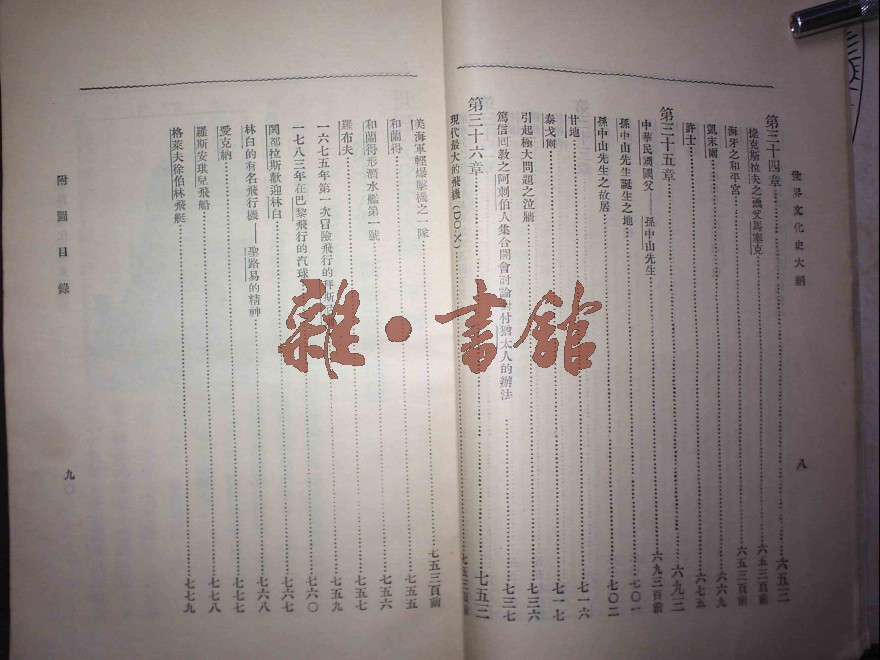 世界文化史大綱
八
第三十四章 六五三
捷克斯拉夫之國父馬塞克 六五三頁前
海牙之和平宮 六五三頁前
凱末爾 六六九
許士 六七五
第三十五章 六九三
中華民國國父——孫中山先生 六九三頁前
孫中山先生誕生之地 七〇一
孫中山先生之故居 七〇二
甘地 七一六
泰戈爾 七一七
引起極大問題之泣牆 七三六
篤信回教之阿剌伯人集合開會討論對付猶太人的辦法 七三七
第三十六章 七五三
現代最大的飛機(DO-X) 七五三頁前
美海軍輕爆擊機之一隊 七五三頁前
和蘭得 七五五
和蘭得形潛水艦第一號 七五六
羅布夫 七五七
一六七五年第一次冒險飛行的拜斯尼 七五九
一七八三年在巴黎飛行的汽球 七六〇
閔都拉斯歡迎林白 七六七
林白的有名飛行機——聖路易的精神 七六八
愛克納 七七七
羅斯安琪兒飛船 七七八
格萊夫徐伯林飛艇 七七九
附圖目錄
九
雜·書館